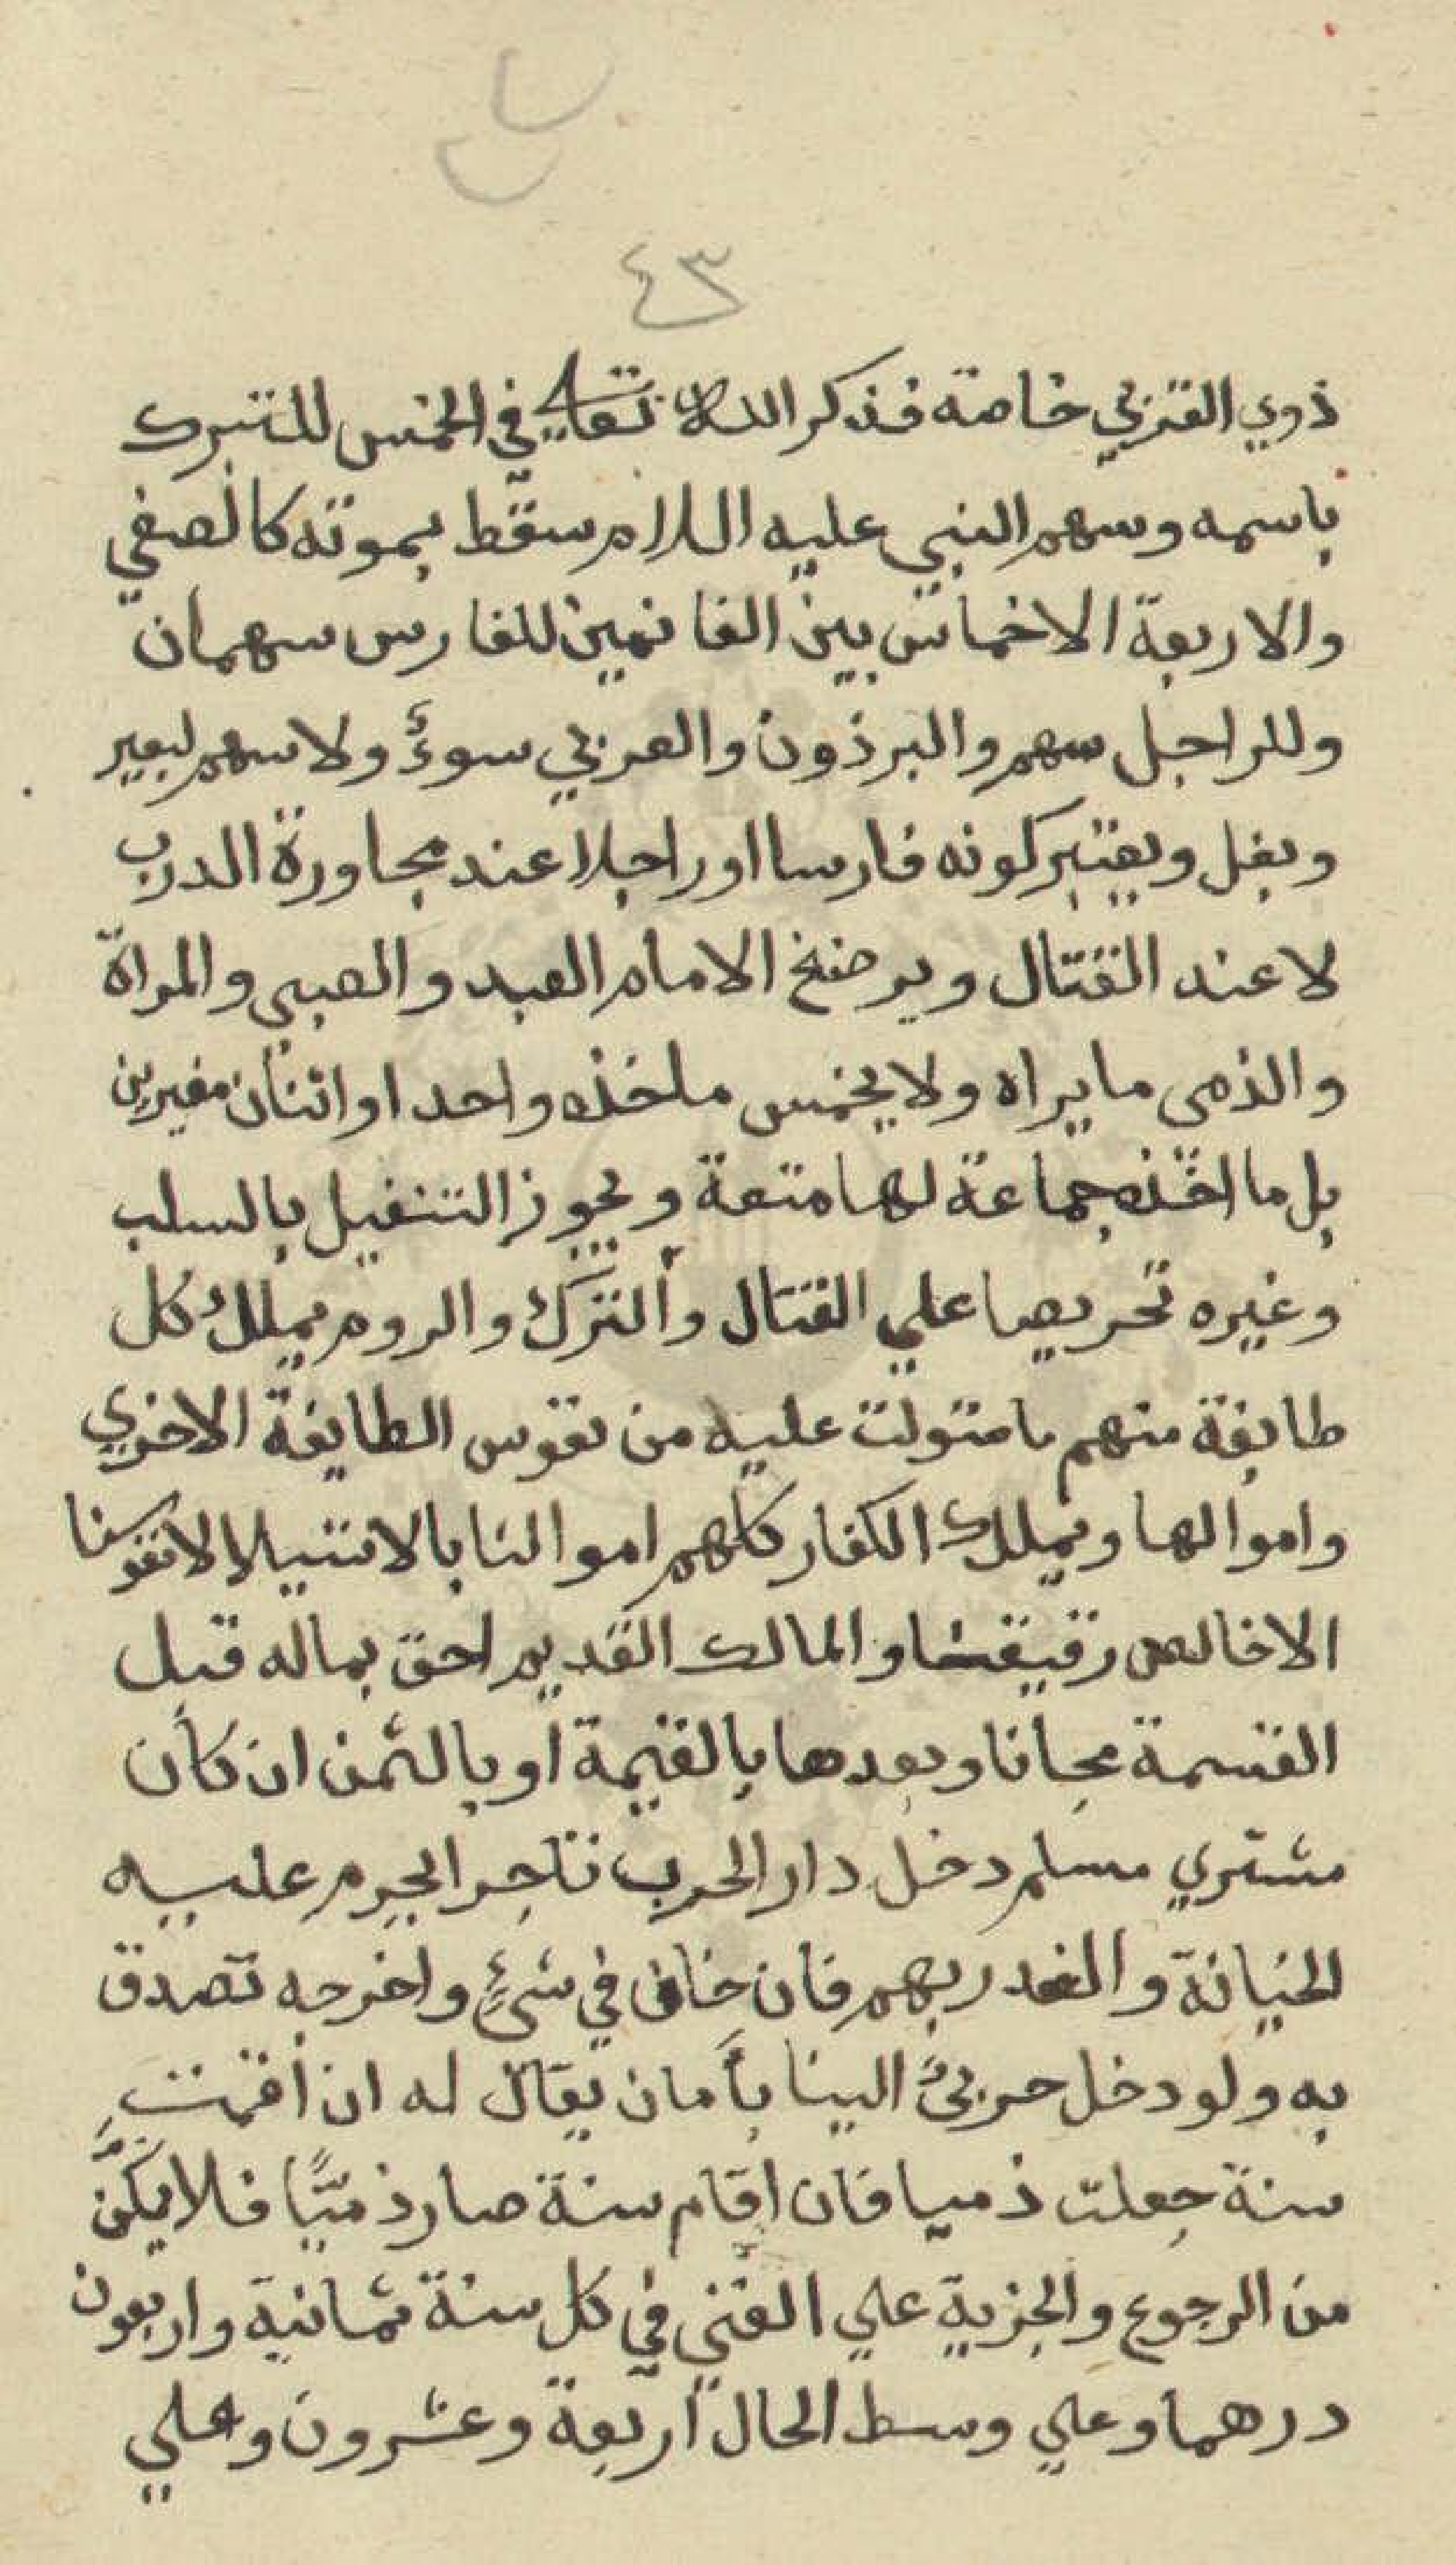 ٤٣
ذوي القربي خاصة فذكر الله تعالي في الخمس للتبرك
باسمه وسهم النبي عليه السلام سقط بموته كالصفي
والاربعة الاخماس بين الغانمين للفارس سهمان
وللراجل سهم والبرذون والعربي سوءٌ ولا سهم لبعير
وبغل ويعتبر كونه فارسا او راجلا عند مجاورة الدرب
لا عند القتال ويرضخ الامام العبد والصبي والمراة
والذمي ما يراه ولا يخمس ماخذه واحد او اثنان مغيرين
بل ما اخذه جماعة لها متعة ويجوز التنفيل بالسلب
وغيره تحريصا علي القتال والترك والروم يملك كل
طايفة منهم ما متولت عليه من نفوس الطايفة الاخري
واموالها ويملك الكفار كلهم اموالنا بالاستيلا لا نفوسنا
الا خالص رقيقنا والمالك القديم احق بماله قبل
القسمة مجانا وبعدها بالقيمة او بالثمن ان كان
مشتري مسلم دخل دار الحرب تاجر ايحرم عليه
الخيانة والغدر بهم فان خان في شئٍ واخرجه تصدق
به ولو دخل حربيٌ الينا بأمان يقال له ان اقمت
سنة جعلت ذميا فان اقام سنة صار ذميًا فلا يمكّن
من الرجوع والجزية علي الغني في كل سنة ثمانية واربعون
درهما وعلي وسط الحال اربعة وعشرون وعلي